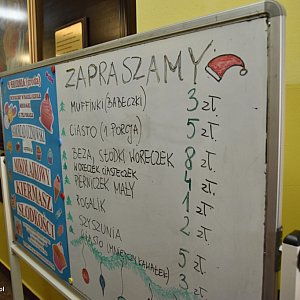 MIKOŁAJKOWY
KIERMASZ
SŁODKOŚCI
ZAPRASZAMY
MUFFINKI (BABECZKI) 3 zł.
CIASTO (1. PORCJA) 5 zł.
BEZA, SŁODKI WORECZEK 8 zł.
WORECZEK CIASTECZEK 4 zł.
PIERNICZEK MAŁY 1 zł.
ROGALIK 2 zł.
SZYSZUNIA 5 zł.
CIASTO (MNIEJSZY KAWAŁEK) 3 zł.